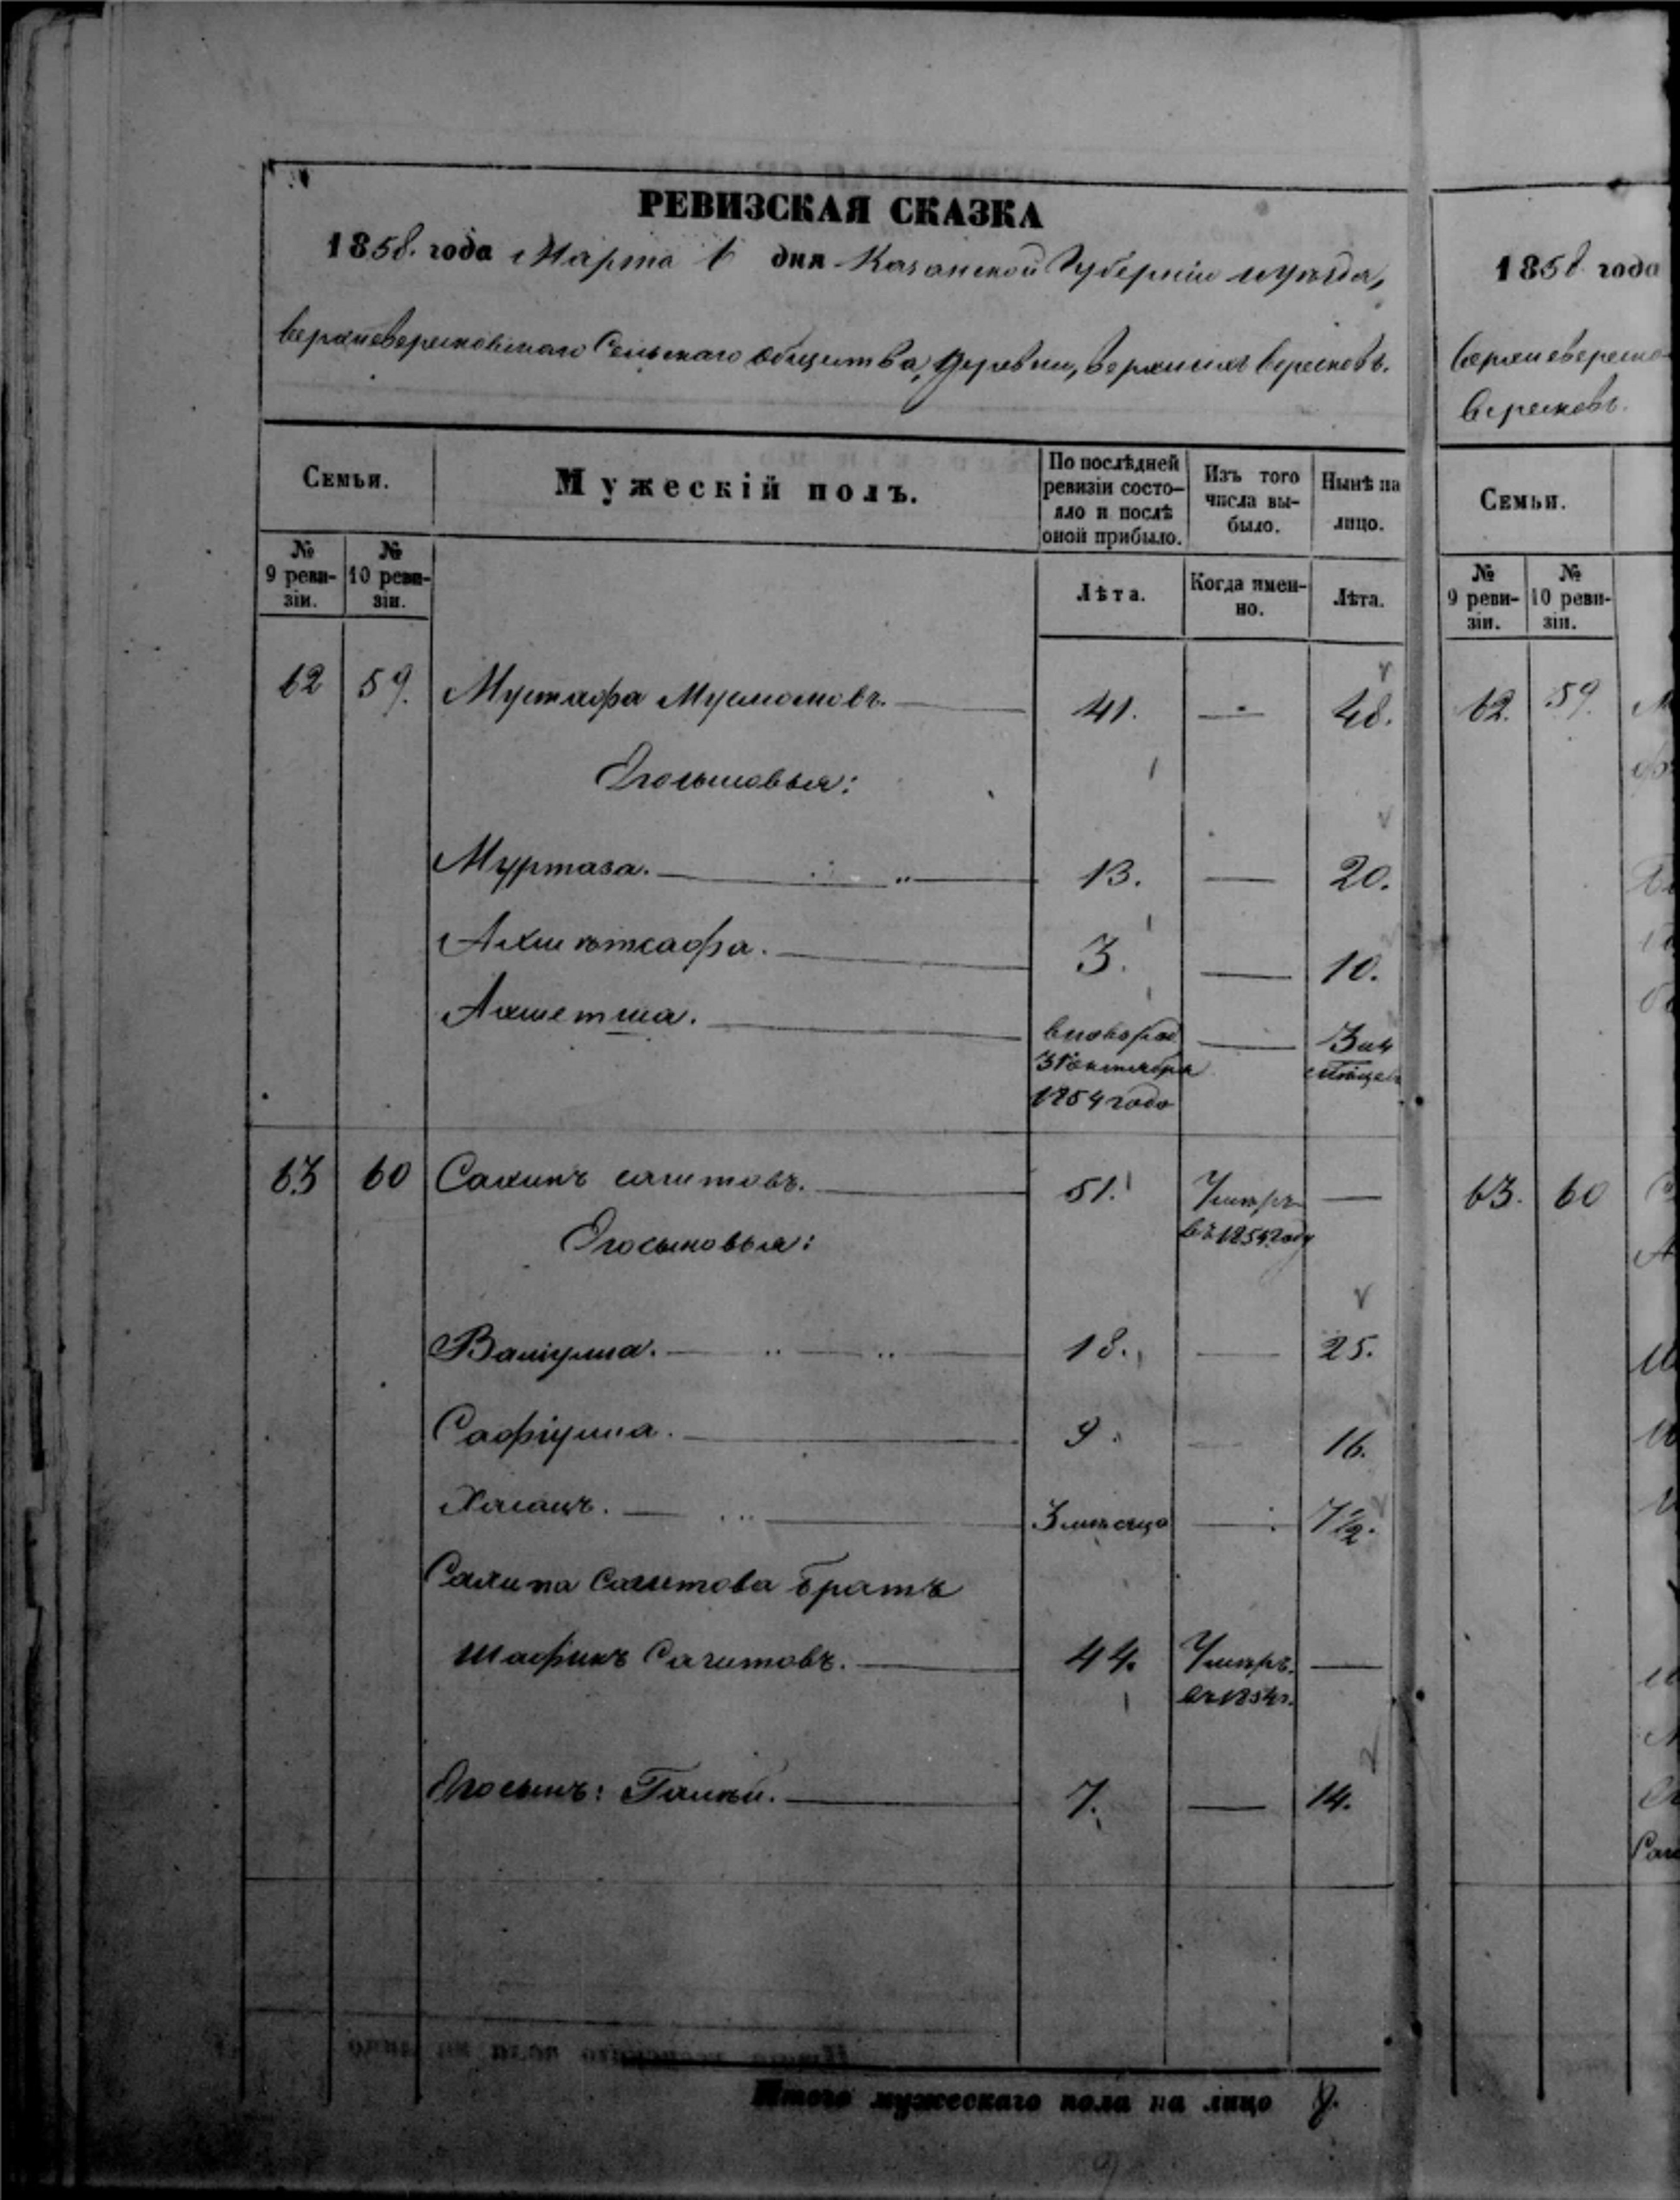 РЕВИЗСКАЯ СКАЗКА
1858. года Марта 1 дня Казанской Губернiи и уѣзда,
Верхневересковскаго Сельскаго общества, Деревни, Верхнихъ Вересковъ.
Семьи.
Мужескій полъ.
По послѣдней ревизіи состо-
яло и послѣ
оной прибыло.
Изъ того
числа вы-
было.
Нынѣ на
лицо.
№
9 реви-
зіи.
№
10 реви-
зіи.
Лѣта.
Когда имен-
но.
Лѣта.
62 59. Мустафа 41. — 48.
Егосыновья:
Муртаза. 13. — 20.
Ахметсафа. 3. — 10.
Ахметша. вновърод — 3 и 4
31 октября мѣсяца
1854 года
63 60 Салихъ Сагитовъ. 51. Умеръ —
въ 1854 году
Егосыновья:
Валиулла. 18. — 25.
Сафіулла. 9. — 16.
Хасанъ. 3 мѣсяца — 7 1/2.
Салиха Сагитова братъ
Шафикъ Сагитовъ. 44. Умеръ. —
въ 1854 г.
Егосынъ: Галѣй. 7. — 14.
Итого мужескаго пола на лицо 8.
1858 года
Вересковъ.
Семьи.
№
9 реви-
зіи.
№
10 реви-
зіи.
62. 59.
63. 60